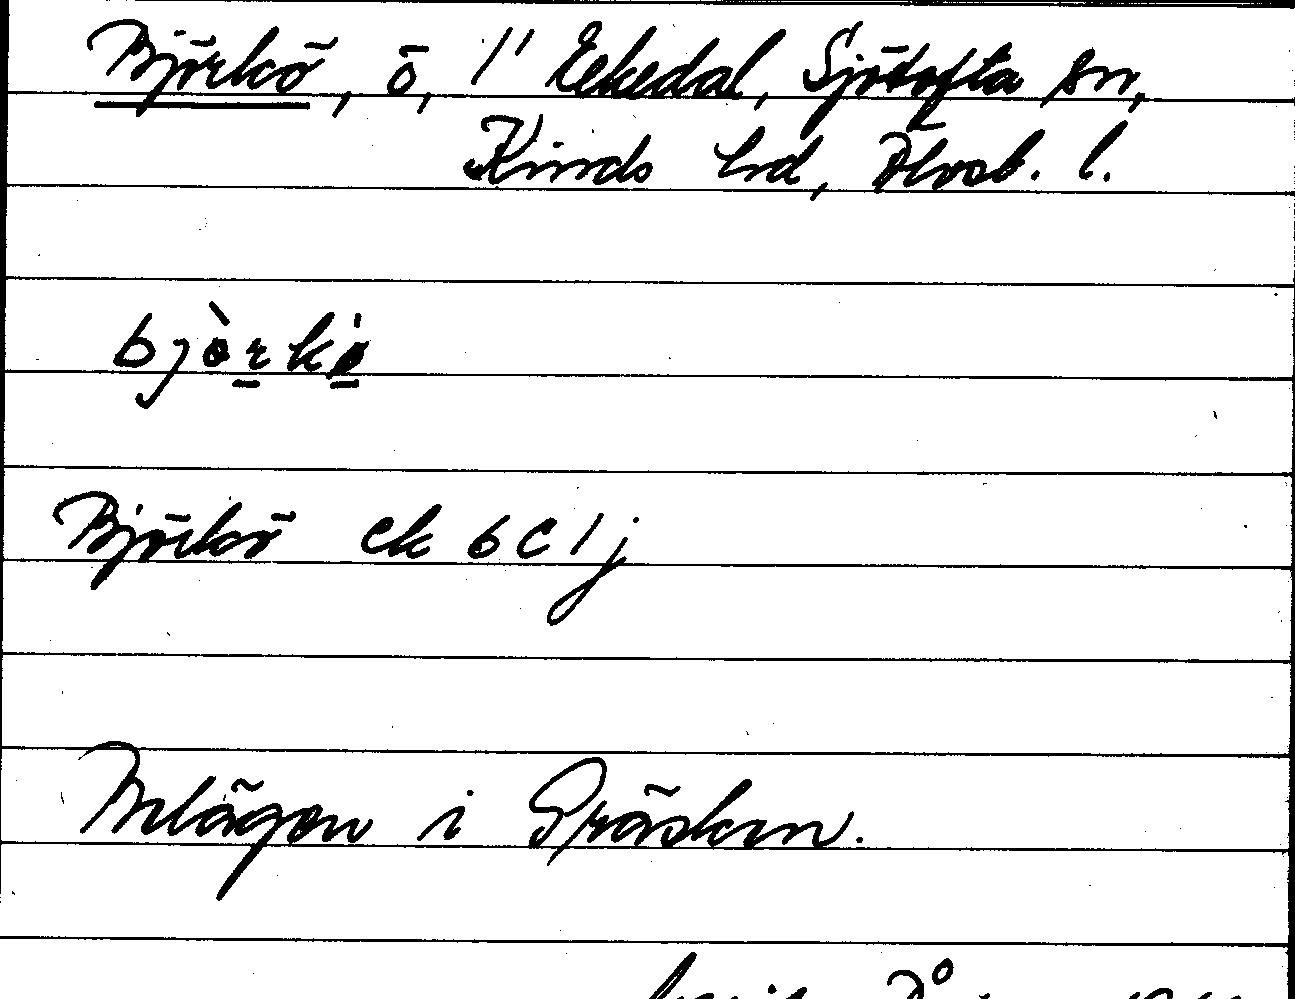 Björkö, ö, 1' Ekedal, Sjötofta sn,
Kinds hd, Älvsb. l.
bjòrkø
Björkö ek 6C1j
Belägen i Gräsken.